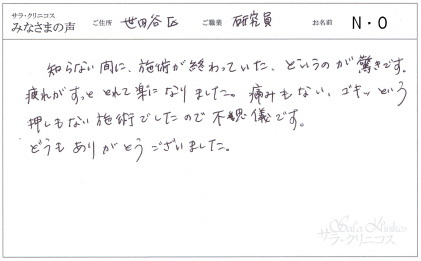 サラ・クリニコス
みなさまの声
ご住所 世田谷区 ご職業 研究員 お名前 N・O
知らない間に、施術が終わっていた、というのが驚きです。
疲れがすっととれて楽になりました。痛みもない、ゴキッという
押しもない施術でしたので不思儀です。
どうもありがとうございました。
サラ・クリニコス